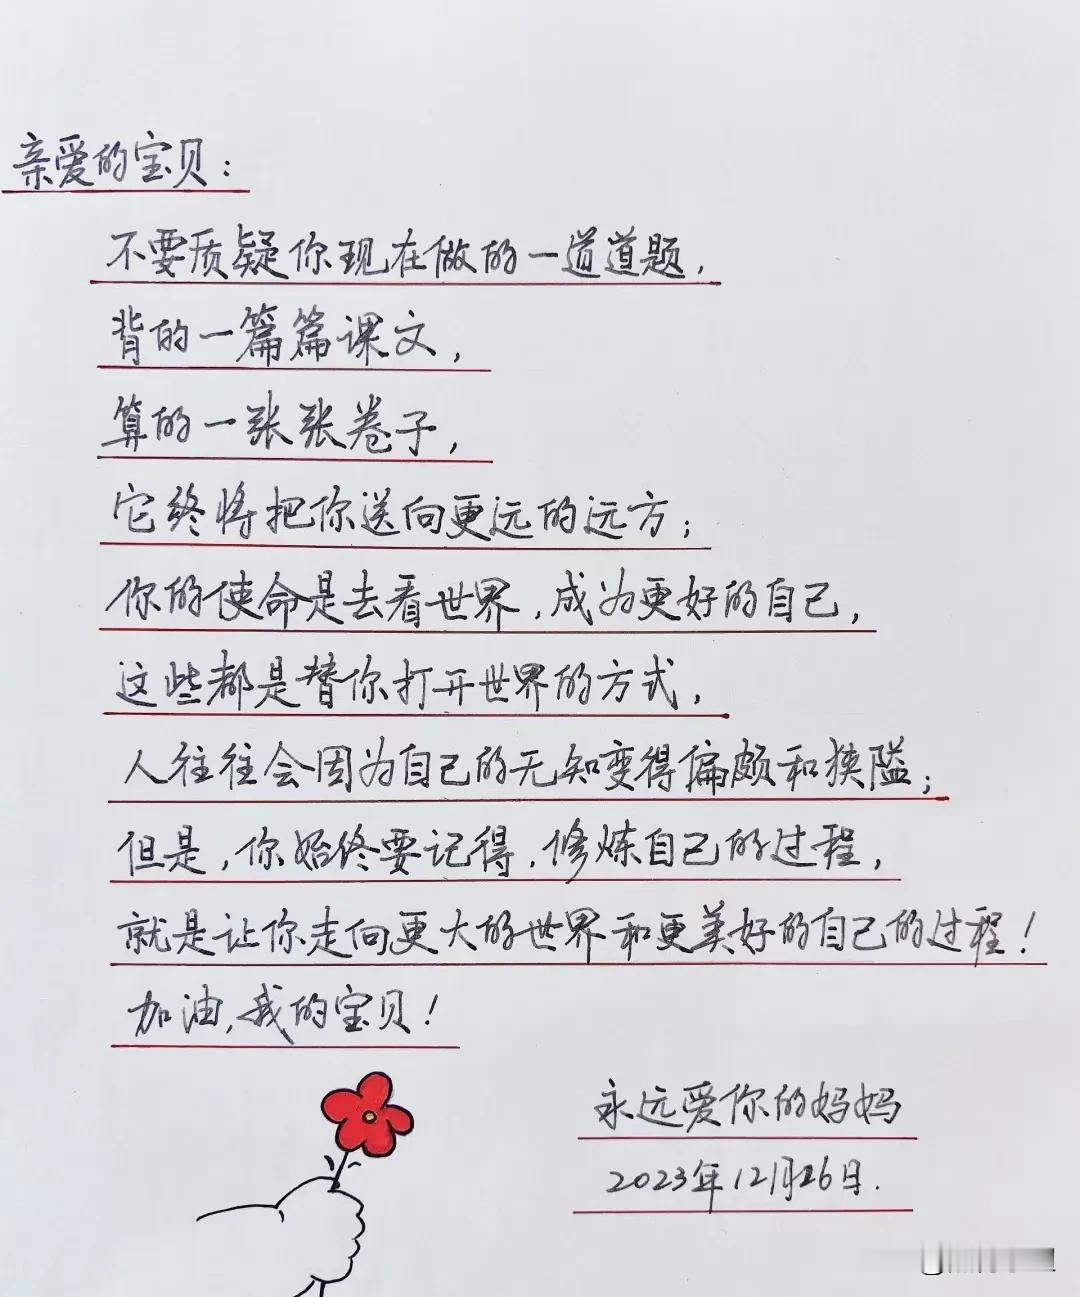 亲爱的宝贝：
不要质疑你现在做的一道道题，
背的一篇篇课文，
算的一张张卷子，
它终将把你送向更远的远方；
你的使命是去看世界，成为更好的自己，
这些都是替你打开世界的方式，
人往往会因为自己的无知变得偏颇和狭隘；
但是，你始终要记得，修炼自己的过程，
就是让你走向更大的世界和更美好的自己的过程！
加油，我的宝贝！
永远爱你的妈妈
2023年12月26日.